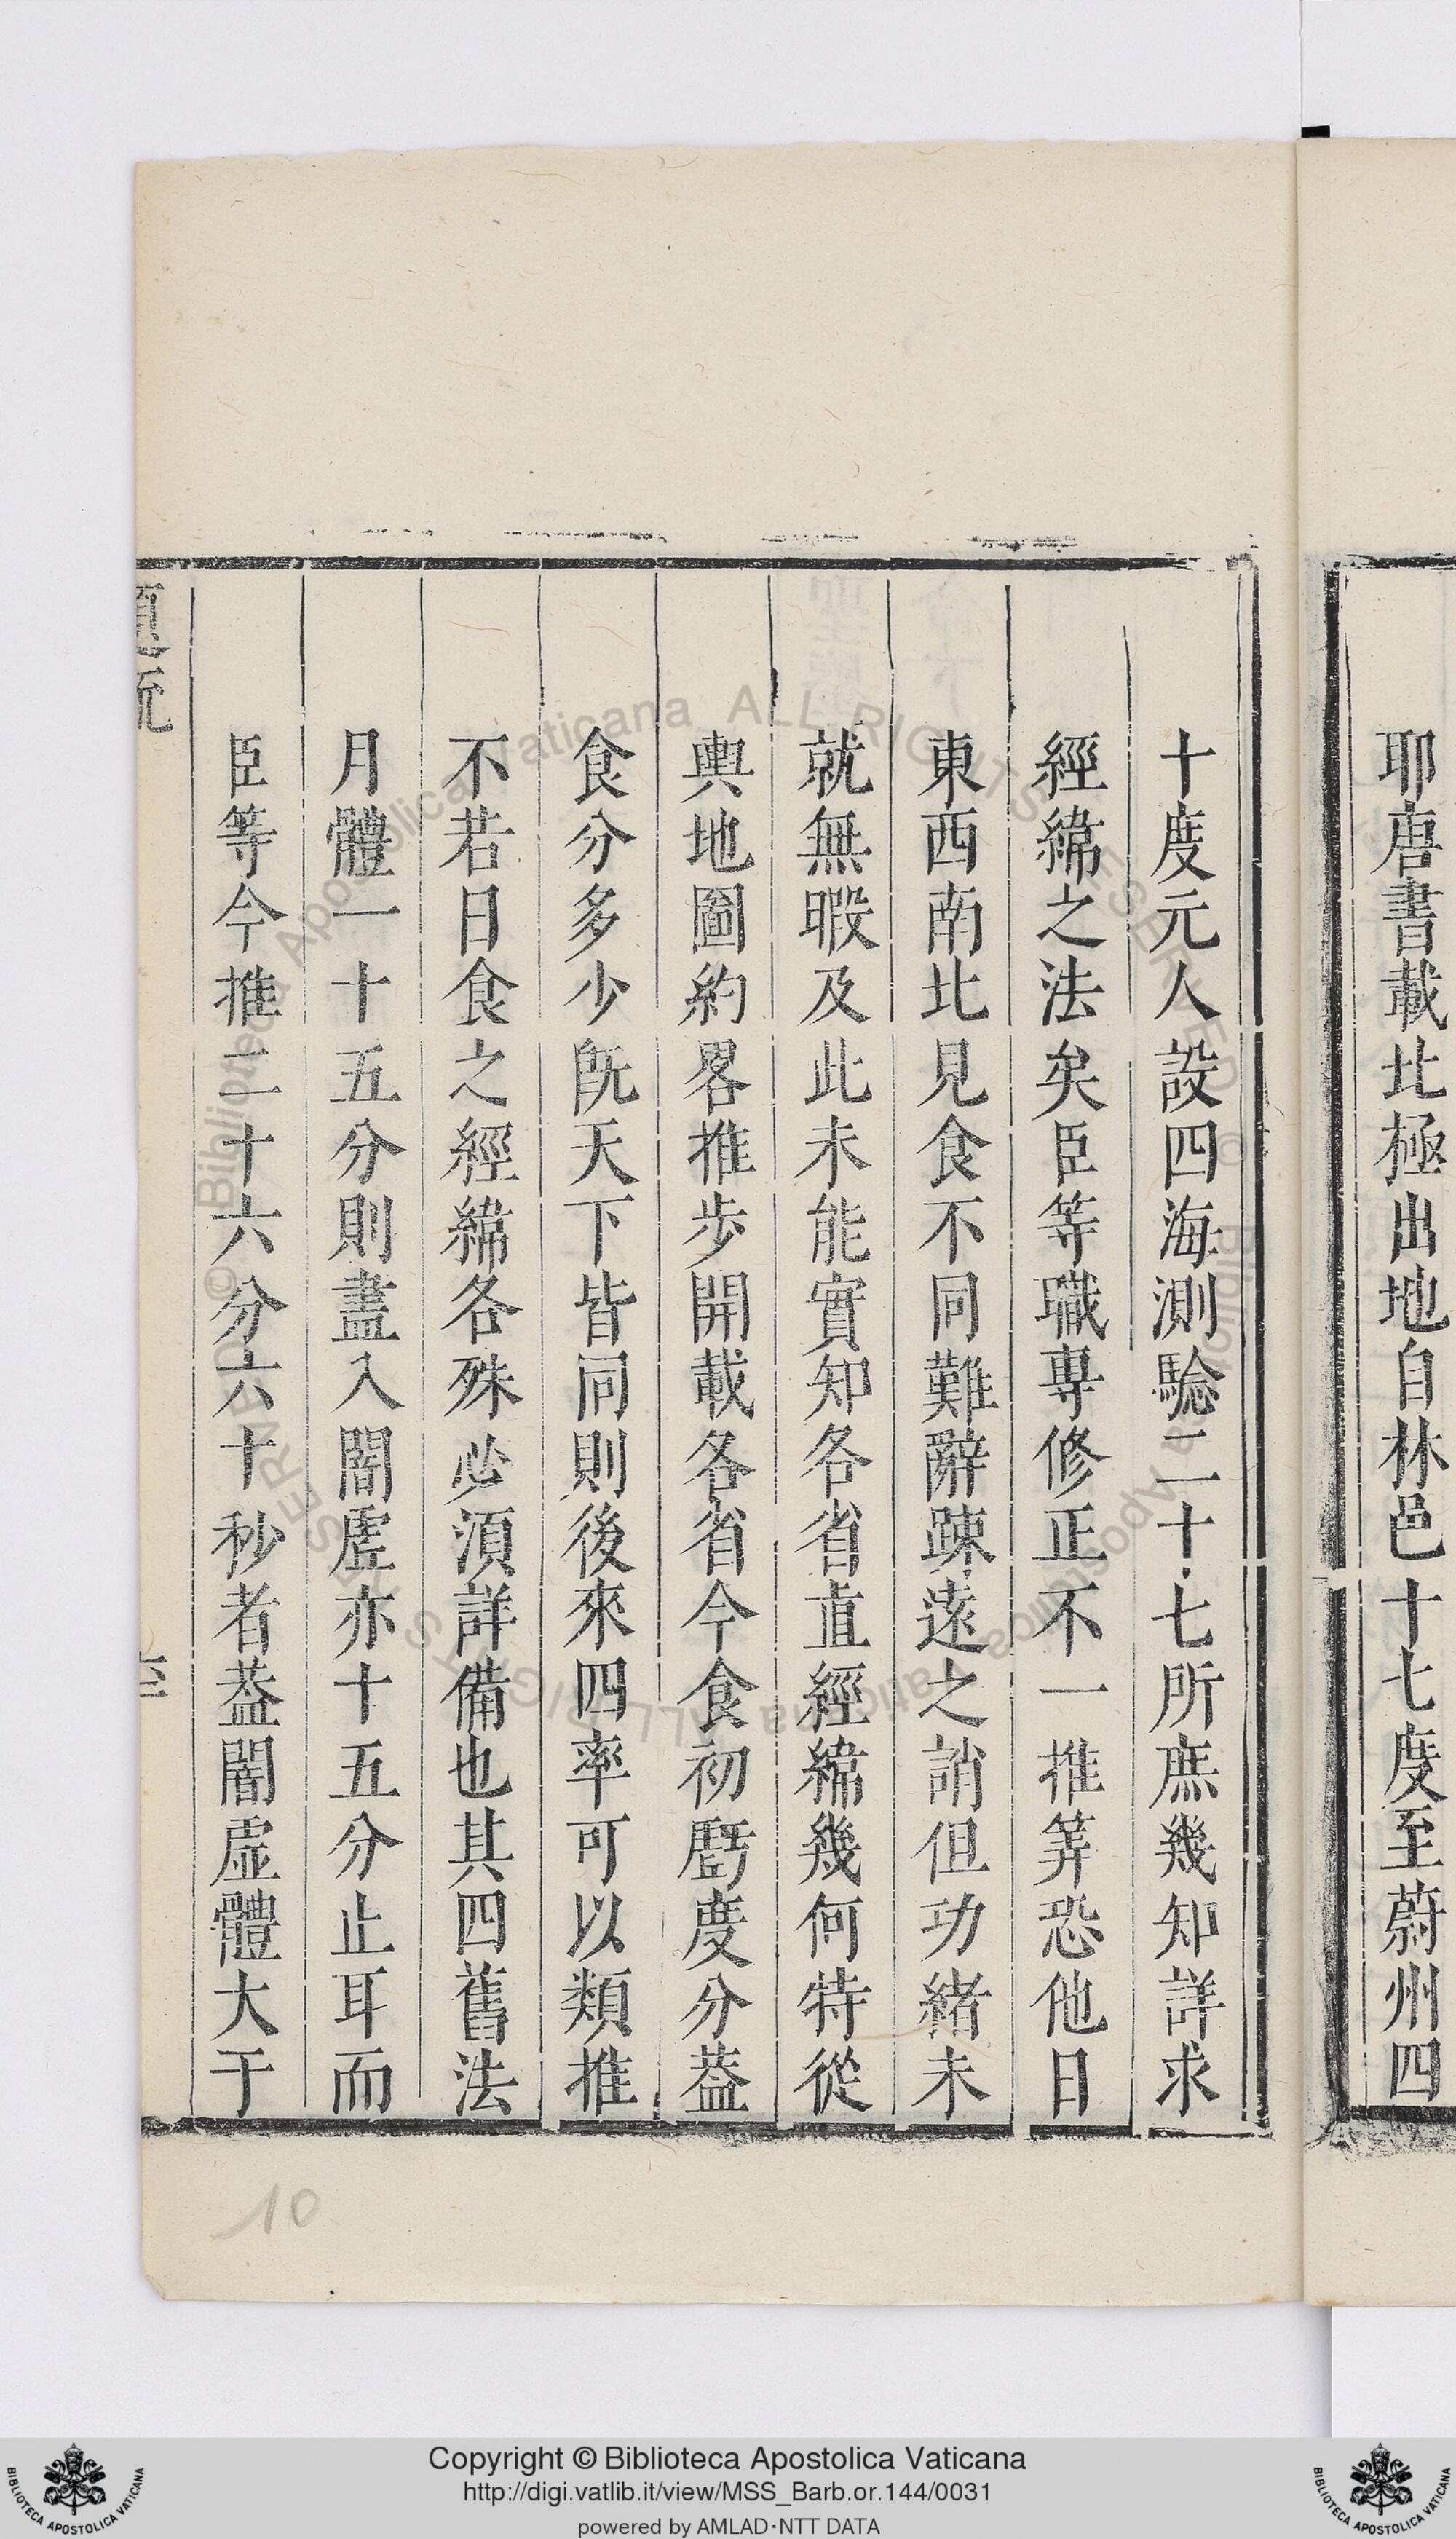 耶唐書載北極出地自林邑十七度至蔚州四
十度元人設四海測騐二十七所庶幾知詳求
經緯之法矣臣等職專修正不一推筭恐他日
東西南北見食不同難辭疎遠之誚但功緒未
就無暇及此未能實知各省直經緯幾何特從
輿地圖約畧推步開載各省今食初虧度分葢
食分多少旣天下皆同則後來四率可以類推
不若日食之經緯各殊必須詳備也其四舊法
月體一十五分則盡入闇虛亦十五分止耳而
臣等今推二十六分六十秒者葢闇虛體大于
10
Copyright © Biblioteca Apostolica Vaticana
http://digi.vatlib.it/view/MSS_Barb.or.144/0031
powered by AMLAD·NTT DATA
BIBLIOTECA APOSTOLICA VATICANA
BIBLIOTECA APOSTOLICA VATICANA